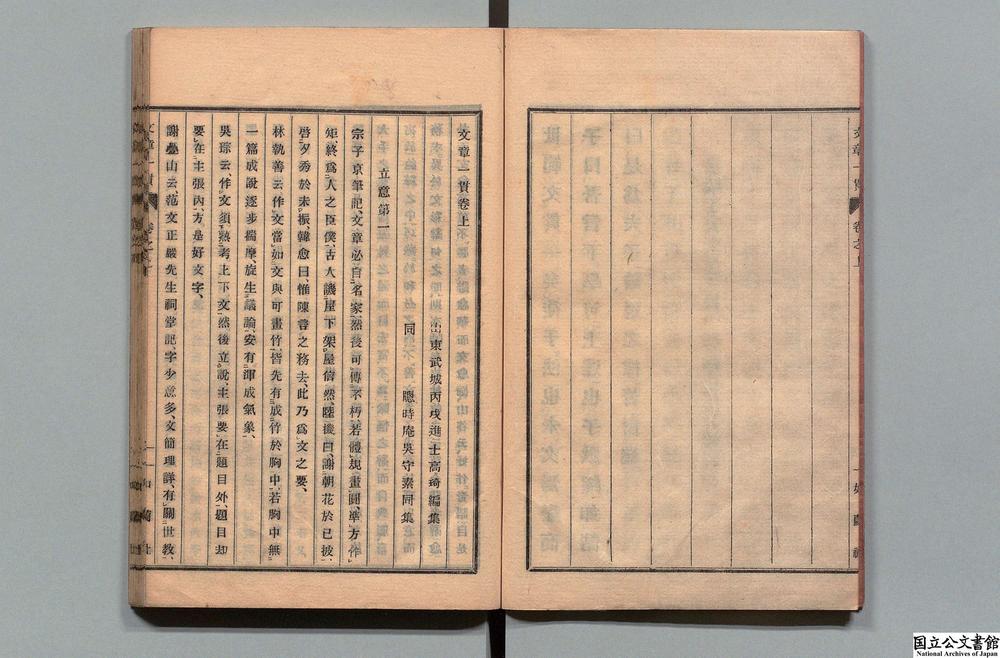 文章一貫卷上
山東武城丙戌進士高琦編集
同 聽時庵吳守素同集
立意第一
宗子京筆記、文章必自名家、然後可傳不朽、若體規畫圓、準方作
矩、終爲人之臣僕、古人譏屋下架屋信然、陸機曰、謝朝花於已披、
啓夕秀於未振、韓愈曰、惟陳言之務去、此乃爲文之要、
林執善云、作文當如文與可畫竹、皆先有成竹於胸中、若胸中無
一篇成說、逐步揣摩、旋生議論、安有渾成氣象、
吳琮云、作文須熟考上下文、然後立說、主張要在題目外、題目却
要在主張內、方是好文字、
謝疊山云、范文正嚴先生祠堂記、字少意多、文簡理詳、有關世教、
文章一貫 卷之上
国立公文書館
National Archives of Japan